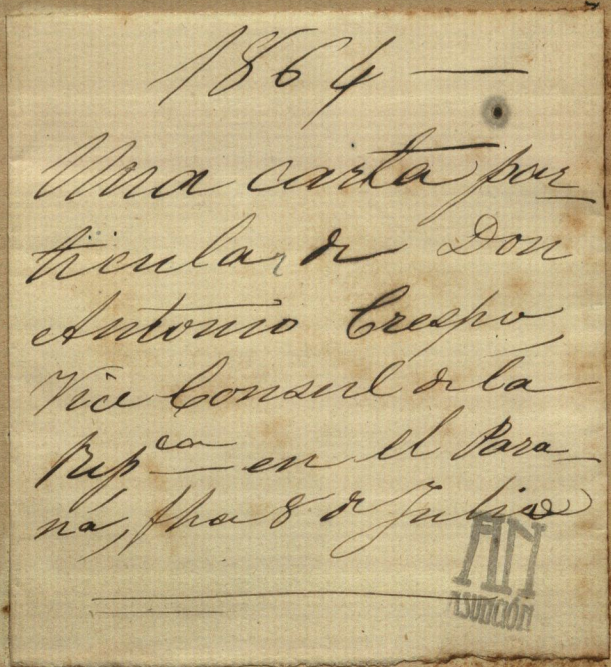 1864 —
Una carta par-
ticular de Don
Antonio Crespo,
Vice Consul de la
Rep^ca en el Para-
ná, fha 8 de Julio
AN
ASUNCIÓN